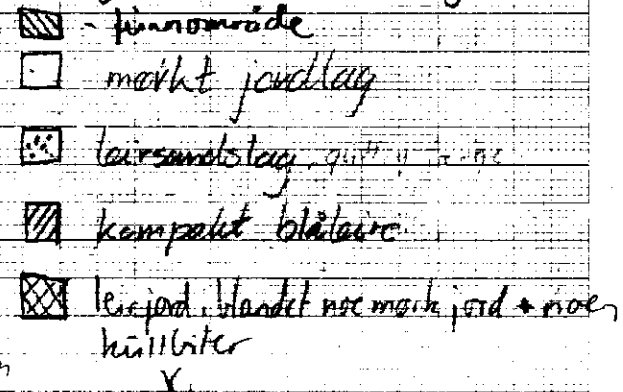 - funnområde
mørkt jordlag
leirsandslag
kompakt blåleire
leirjord, blandet noe mørk jord + noen
kullbiter